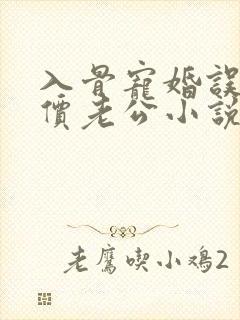 入骨寵婚誤
價老公小説
老鷹喫小鳮2